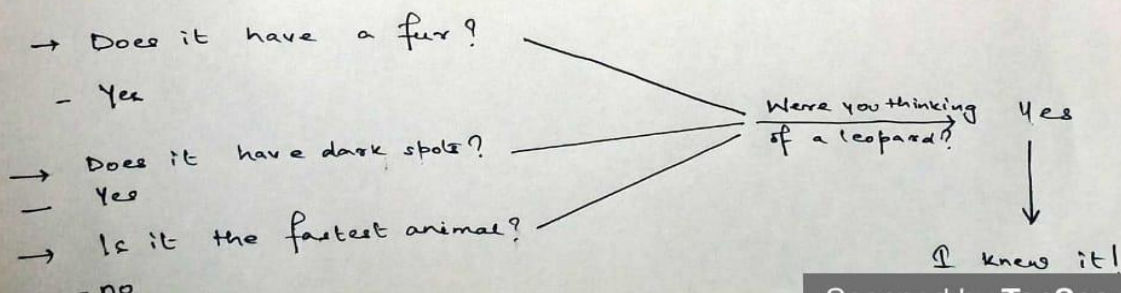 → Does it have a fur?
- Yes
→ Does it have dark spots?
- Yes
→ Is it the fastest animal?
- no
Were you thinking
of a leopard?
Yes
I knew it!